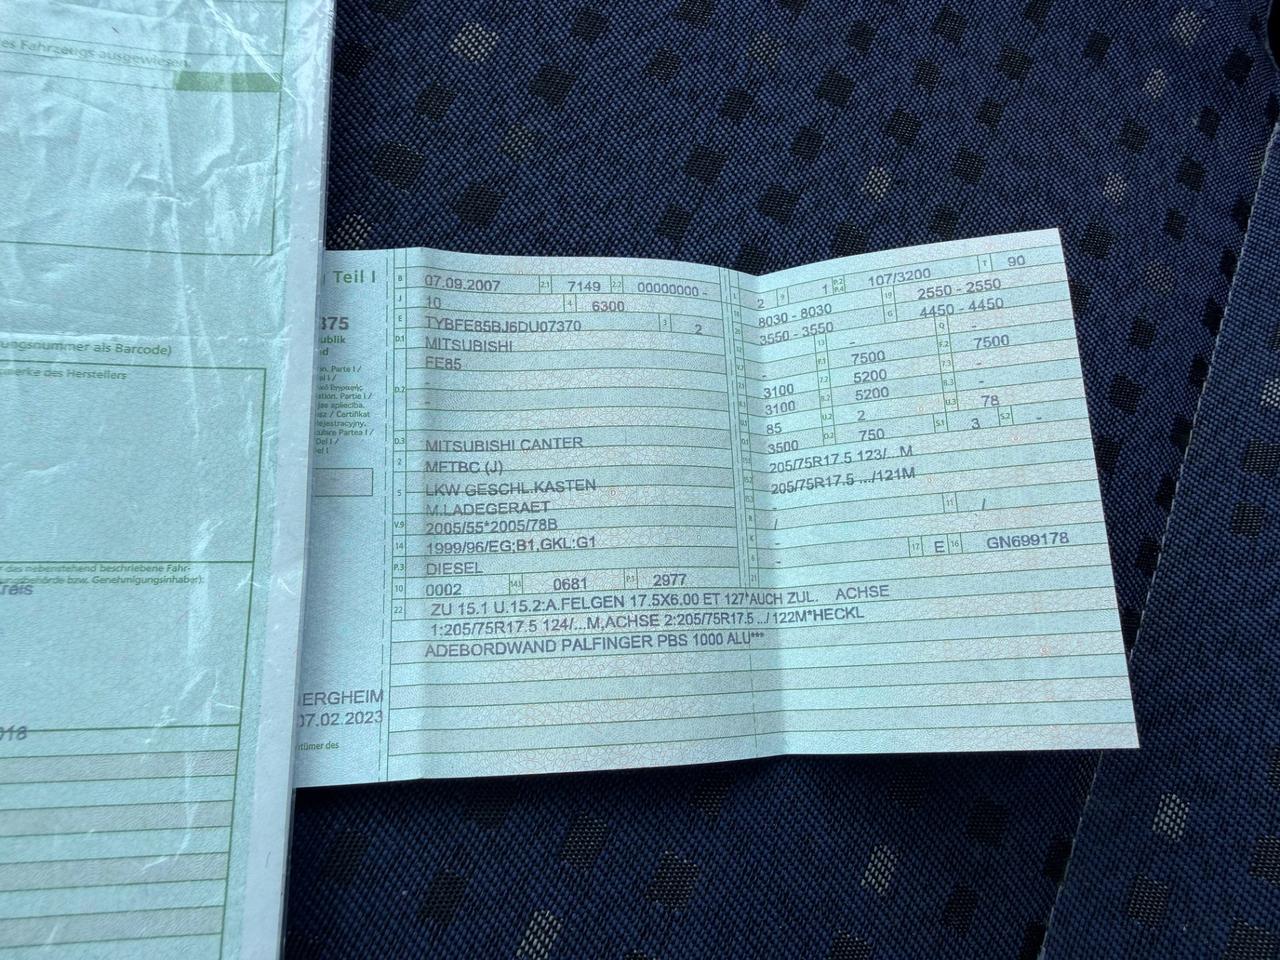 es Fahrzeugs ausgewiesen.
ungsnummer als Barcode)
merke des Herstellers
des nebenstehend beschriebene Fahr-
ungsbehörde bzw. Genehmigungsinhaber):
reis
018
Teil I
375
ublik
d
ERGHEIM
07.02.2023
ntümer des
B 07.09.2007 2.1 7149 2.2 00000000 -
J 10 4 6300
E TYBFE85BJ6DU07370 3 2
D.1 MITSUBISHI
FE85
D.2 -
-
D.3 MITSUBISHI CANTER
2 MFTBC (J)
5 LKW GESCHL.KASTEN
M.LADEGERAET
V.9 2005/55*2005/78B
14 1999/96/EG;B1,GKL:G1
P.3 DIESEL
10 0002 14.1 0681 P.1 2977
22 ZU 15.1 U.15.2:A.FELGEN 17.5X6.00 ET 127*AUCH ZUL. ACHSE
1:205/75R17.5 124/...M,ACHSE 2:205/75R17.5 .../122M*HECKL
ADEBORDWAND PALFINGER PBS 1000 ALU***
L 2 9 1 P.2 P.4 107/3200 T 90
18 8030 - 8030 19 2550 - 2550
20 3550 - 3550 G 4450 - 4450
12 - 13 - Q -
V.7 - F.1 7500 F.2 7500
7.1 3100 7.2 5200 7.3 -
8.1 3100 8.2 5200 8.3 -
U.1 85 U.2 2 U.3 78
O.1 3500 O.2 750 S.1 3 S.2 -
15.1 205/75R17.5 123/...M
15.2 205/75R17.5 .../121M
15.3 -
R / 11 /
K -
6 - 17 E 16 GN699178
21